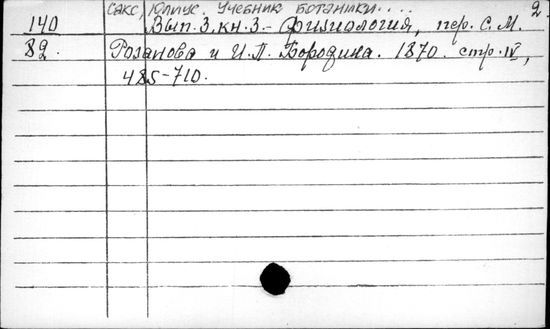 Сакс, Юлиус. Учебник ботаники.... 2
140 Вып. 3, кн. 3.- Физиология, пер. С. М.
82. Розанова и И. П. Бородина. 1870. стр. IV,
485-710.